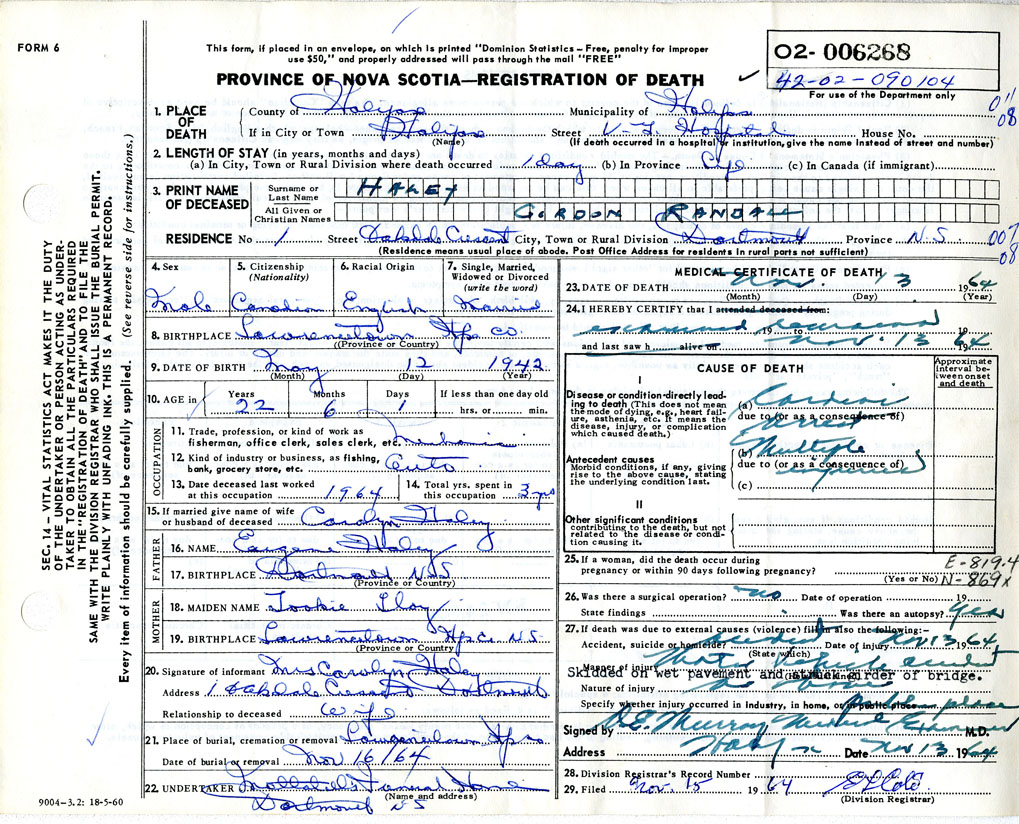 FORM 6
This form, if placed in an envelope, on which is printed "Dominion Statistics – Free, penalty for improper
use $50," and properly addressed will pass through the mail "FREE"
PROVINCE OF NOVA SCOTIA—REGISTRATION OF DEATH
02- 006268
42-02-090104
For use of the Department only
011
08
1. PLACE OF DEATH
County of Halifax Municipality of Halifax
If in City or Town Halifax Street V-G Hospital House No.
(Name) (If death occurred in a hospital or institution, give the name instead of street and number)
2. LENGTH OF STAY (in years, months and days)
(a) In City, Town or Rural Division where death occurred 1 day (b) In Province Life (c) In Canada (if immigrant)
3. PRINT NAME OF DECEASED
Surname or Last Name HALEY
All Given or Christian Names GORDON RANDALL
RESIDENCE No 1 Street Oakdale Crescent City, Town or Rural Division Dartmouth Province N.S.
007
08
(Residence means usual place of abode. Post Office Address for residents in rural parts not sufficient)
4. Sex Male
5. Citizenship (Nationality) Canadian
6. Racial Origin English
7. Single, Married, Widowed or Divorced (write the word) Married
8. BIRTHPLACE Lawrencetown Hfx Co.
(Province or Country)
9. DATE OF BIRTH May 12 1942
(Month) (Day) (Year)
10. AGE in Years 22 Months 6 Days 1 If less than one day old hrs. or min.
OCCUPATION
11. Trade, profession, or kind of work as
fisherman, office clerk, sales clerk, etc. mechanic
12. Kind of industry or business, as fishing,
bank, grocery store, etc. Auto
13. Date deceased last worked
at this occupation 1964
14. Total yrs. spent in
this occupation 3 yrs
15. If married give name of wife
or husband of deceased Carolyn Haley
FATHER
16. NAME Eugene Haley
17. BIRTHPLACE Dartmouth N.S
(Province or Country)
MOTHER
18. MAIDEN NAME Tookie
19. BIRTHPLACE Lawrencetown Hfx Co. N.S.
(Province or Country)
20. Signature of informant Mrs Carolyn Haley
Address 1 Oakdale Crescent Dartmouth
Relationship to deceased Wife
21. Place of burial, cremation or removal Lawrencetown Hfx Co
Date of burial or removal Nov 16/64
22. UNDERTAKER Funeral Home
(Name and address)
Dartmouth NS
MEDICAL CERTIFICATE OF DEATH
23. DATE OF DEATH Nov. 13 1964
(Month) (Day) (Year)
24. I HEREBY CERTIFY that I attended deceased from:
examined 19 to 19
and last saw h alive on Nov. 13 1964
CAUSE OF DEATH
Approximate interval between onset and death
I
Disease or condition directly leading to death (This does not mean the mode of dying, e.g., heart failure, asthenia, etc. It means the disease, injury, or complication which caused death.)
(a) Cardiac
due to (or as a consequence of)
Arrest
Antecedent causes
Morbid conditions, if any, giving rise to the above cause, stating the underlying condition last.
(b) Multiple
due to (or as a consequence of)
injuries
(c)
II
Other significant conditions
contributing to the death, but not related to the disease or condition causing it.
25. If a woman, did the death occur during
pregnancy or within 90 days following pregnancy?
(Yes or No)
E-819.4
N-869x
26. Was there a surgical operation? no Date of operation 19
State findings Was there an autopsy? Yes
27. If death was due to external causes (violence) fill in also the following:-
Accident, suicide or homicide? accident Date of injury Nov 13 1964
(State which)
Manner of injury Motor Vehicle accident
Skidded on wet pavement and struck girder of bridge.
Nature of injury
Specify whether injury occurred in Industry, in home, or in public place Public place
Signed by D.E. Murray Medical Examiner M.D.
Address Halifax Date Nov 13 1964
28. Division Registrar's Record Number
29. Filed Nov. 15 1964
(Division Registrar)
SEC. 14 – VITAL STATISTICS ACT MAKES IT THE DUTY
OF THE UNDERTAKER OR PERSON ACTING AS UNDER-
TAKER TO OBTAIN ALL THE PARTICULARS REQUIRED
IN THE "REGISTRATION OF DEATH" AND TO FILE THE
SAME WITH THE DIVISION REGISTRAR WHO SHALL ISSUE THE BURIAL PERMIT.
WRITE PLAINLY WITH UNFADING INK. THIS IS A PERMANENT RECORD.
Every item of information should be carefully supplied. (See reverse side for instructions.)
9004–3.2: 18-5-60